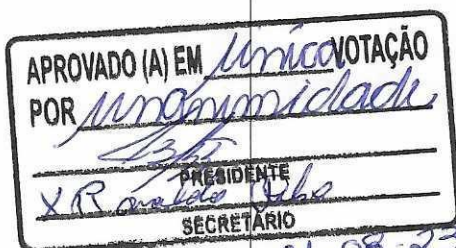 APROVADO (A) EM Unica VOTAÇÃO
POR Unanimidade
PRESIDENTE
X Ronaldo
SECRETÁRIO
08 23